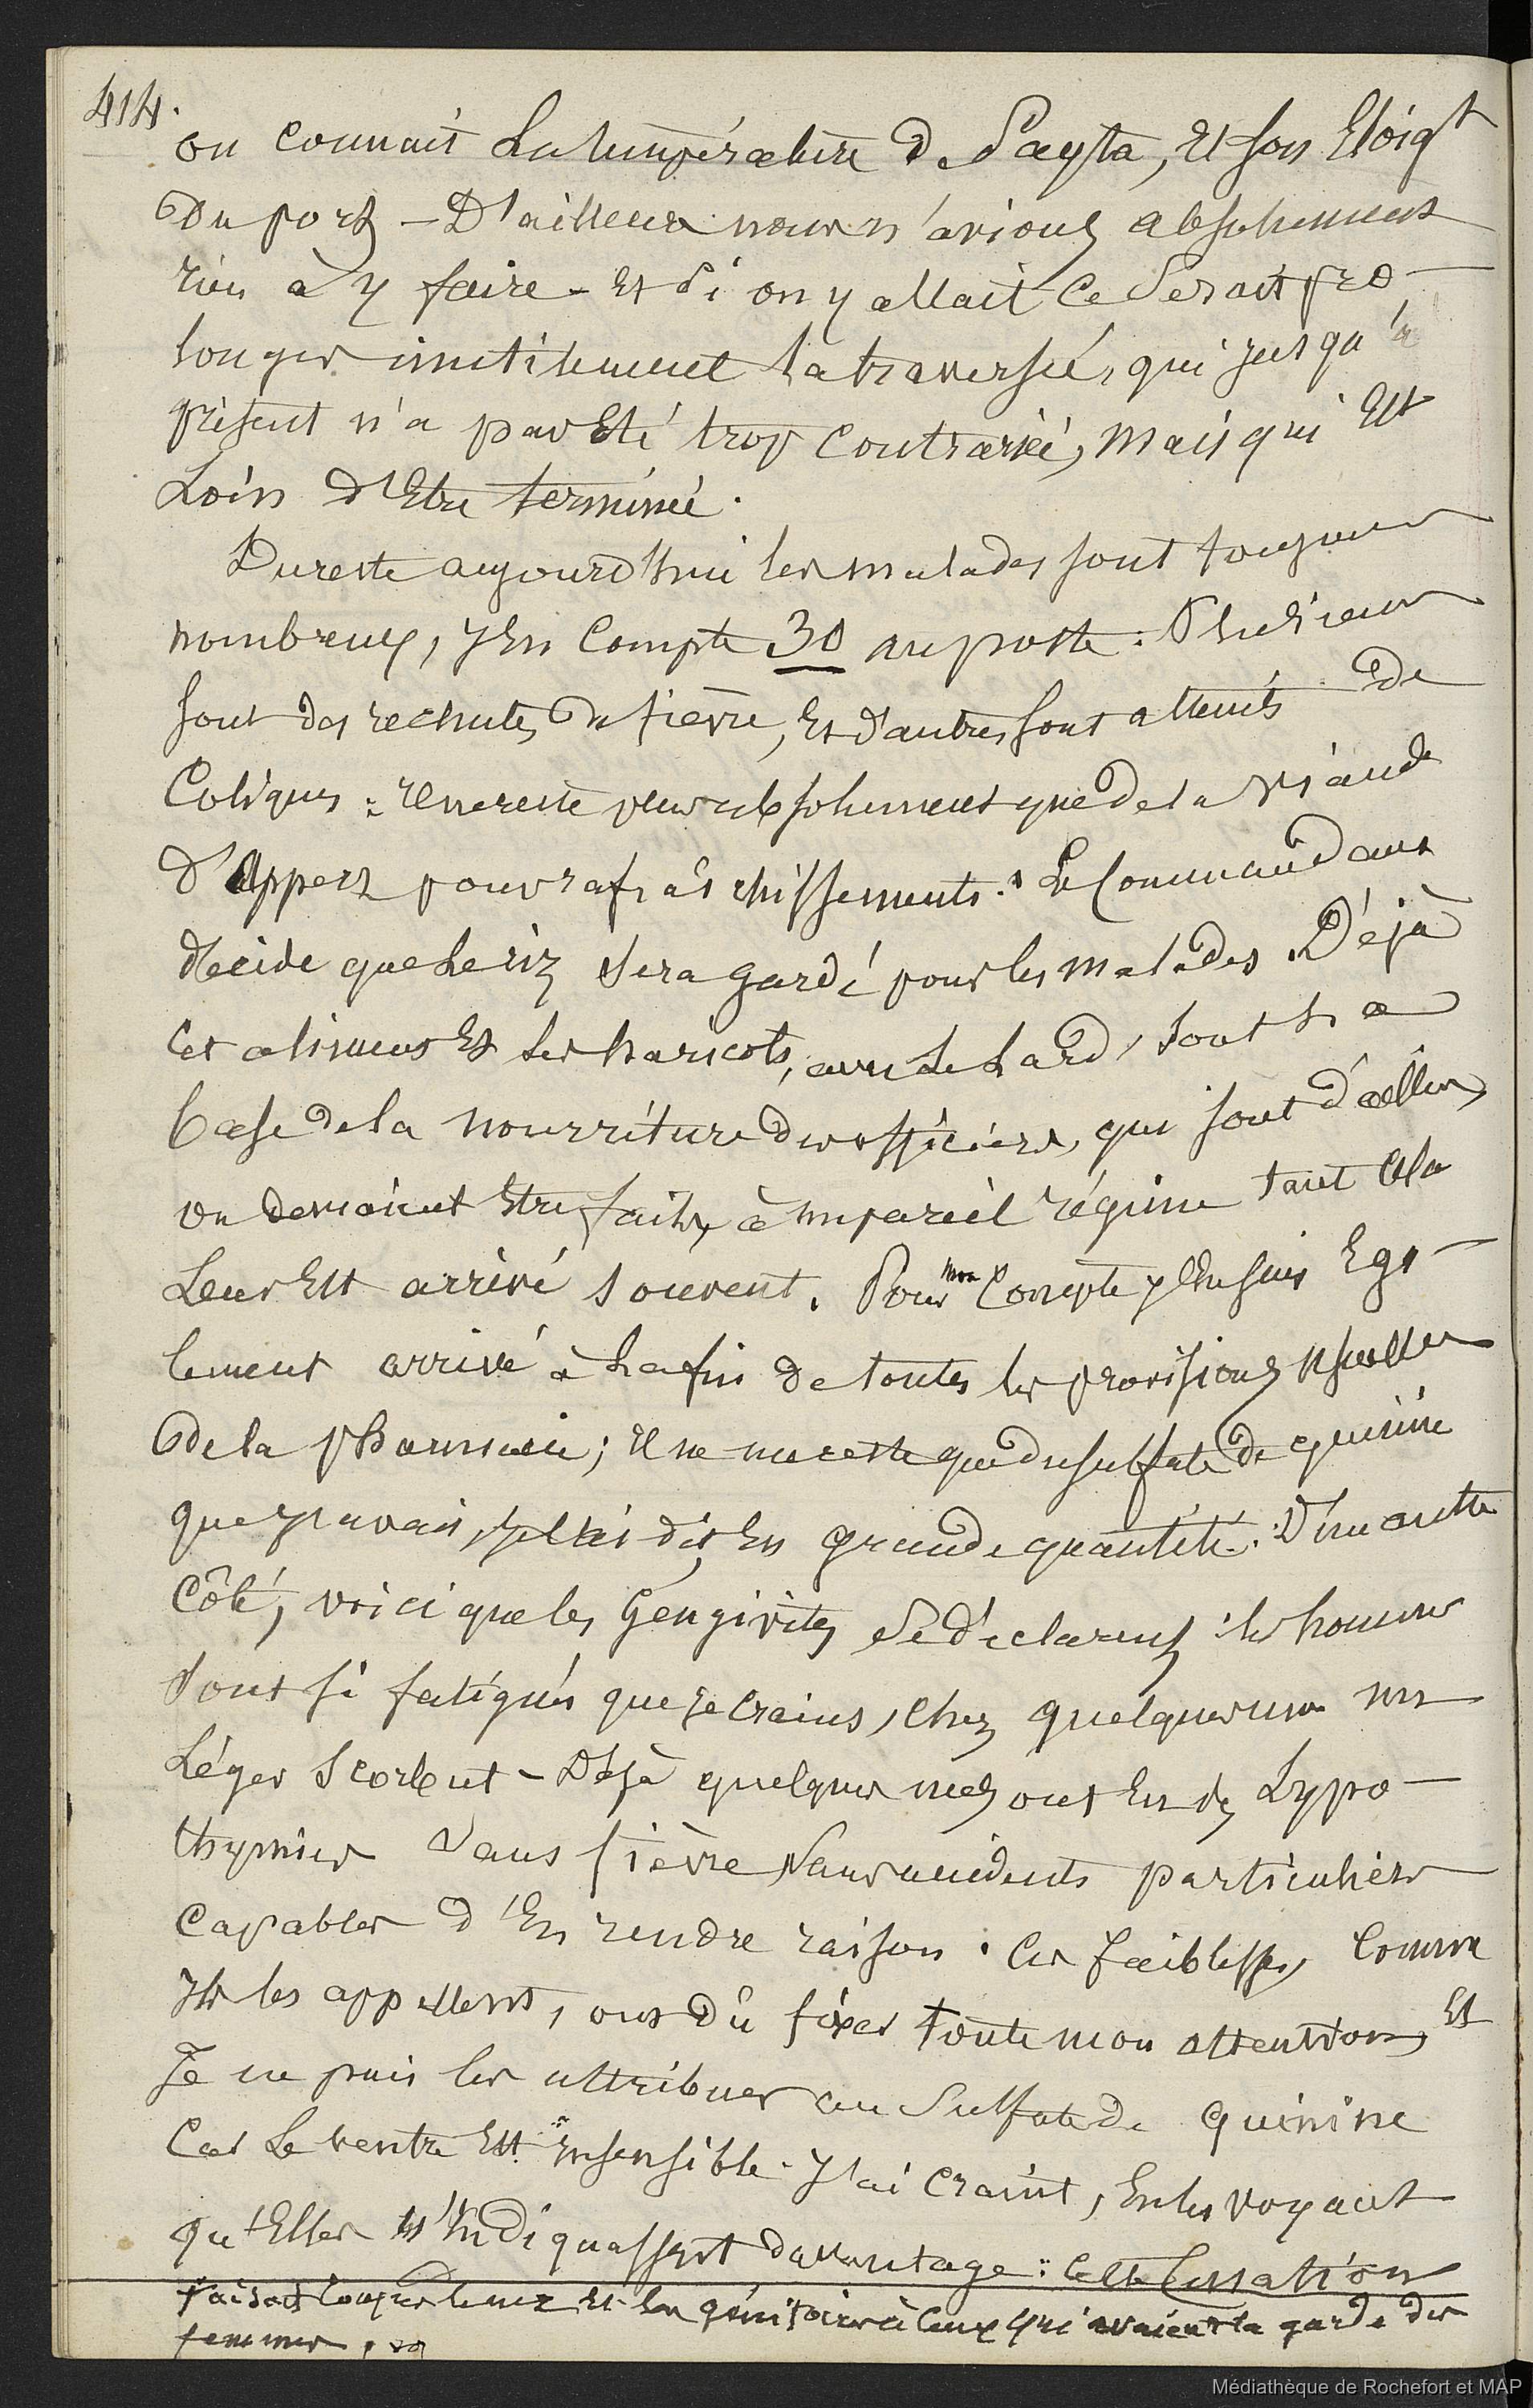 414.
on connait la température de Payta, Et son Eloigt
du port – D'ailleurs nous n'avions absolument
rien à y faire – Et si on y allait ce serait pro-
longer inutilement la traversée, qui jusqu'à
présent n'a pas Eté trop contrariée, mais qui Est
Loin d'Etre terminée.
Du reste aujourd'hui les malades sont toujours
nombreux, j'En compte 30 au poste : Plusieurs
sont des rechutes de fièvre, Et d'autres sont atteints de
Coliques : Il ne reste plus absolument que de la viande
d'Appert pour rafraîchissements. Le Commandant
décide que le riz sera gardé pour les malades. Déjà
cet aliment Et les haricots, avec le Lard, sont la
base de la nourriture des officiers, qui sont d'ailleurs,
ou devraient Etre faits, à un pareil régime tant cela
Leur Est arrivé souvent. Pour mon Compte j'En suis Ega-
lement arrivé à la fin de toutes les provisions usuelles
de la pharmacie ; Il ne me reste que du sulfate de quinine
que j'avais, je l'ai dit, En grande quantité. D'un autre
Côté, voici que les Gengivites se déclarent : les hommes
sont si fatigués que je crains, chez quelques uns un
Léger scorbut – Déjà quelques uns ont Eu des Lypo-
thymies sans fièvre, sans accidents particuliers
Capables d'En rendre raison. Ces faiblesses, comme
Ils les appellent, ont dû fixer toute mon attention, Et
Je ne puis les attribuer au Sulfate de quinine
Car Le ventre Est insensible. J'ai craint, En les voyant
qu'Elles n'indiquassent davantage : cette cessation
faisait couper le nez Et les génitoires à ceux qui avaient la garde des
femmes,